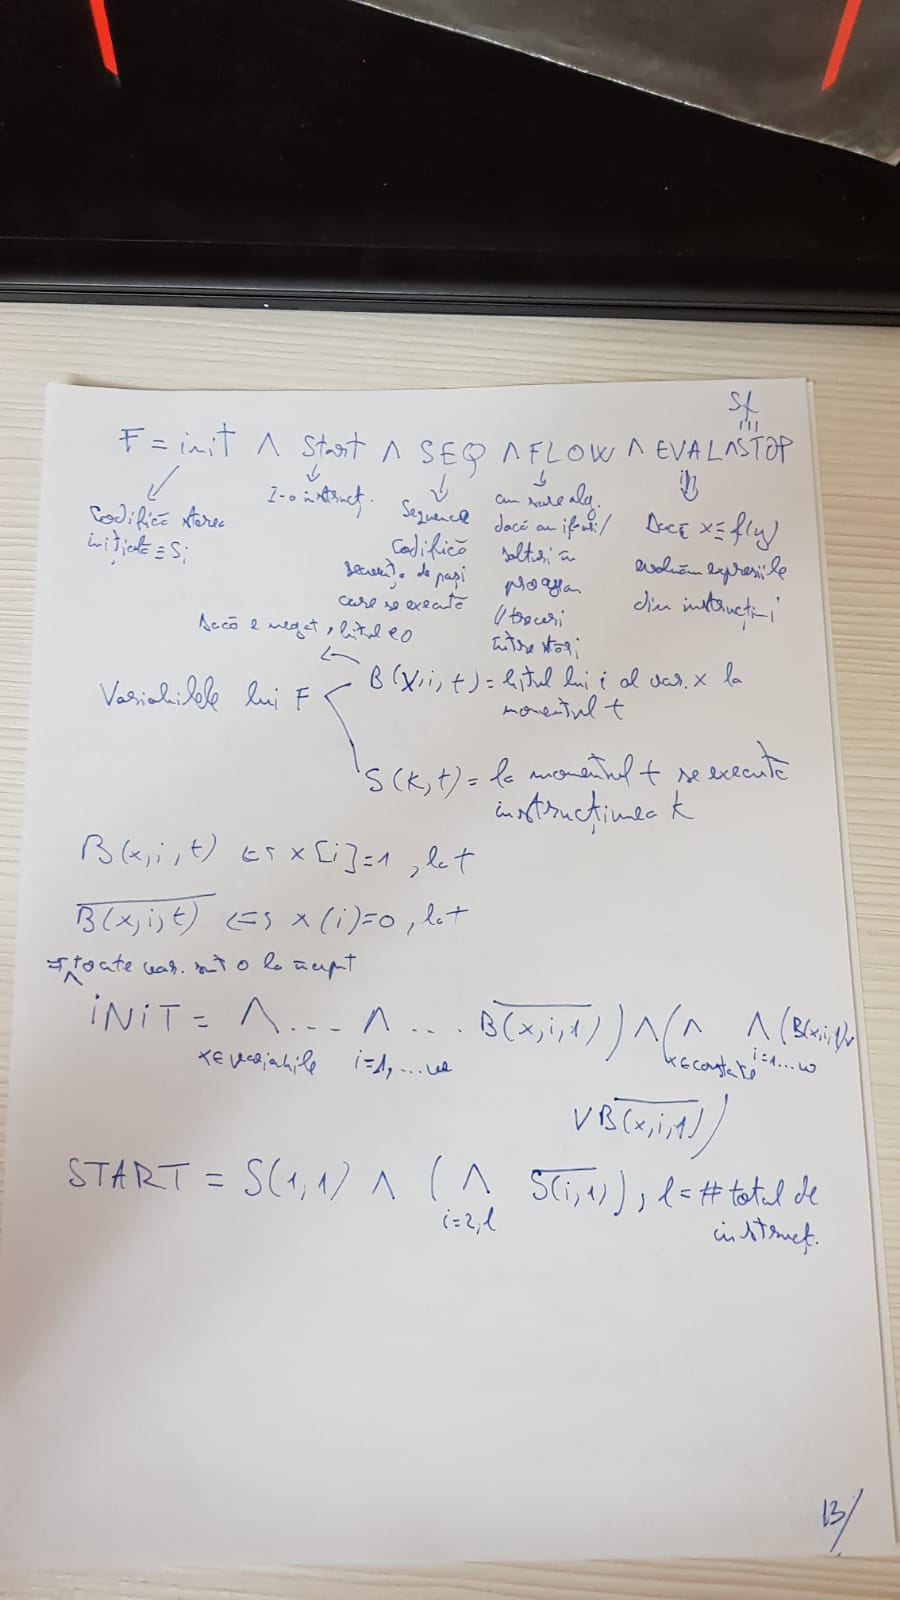 Sf
F = init ∧ Start ∧ SEQ ∧ FLOW ∧ EVAL ∧ STOP
Codifică starea
inițială ≡ Si
I-a instrucț.
Sequence
Codifică
secvența de pași
care se execută
am nare alg.
dacă am ifuri/
salturi în
program
// treceri
între stări
Dacă x = f(y)
evaluăm expresiile
din instrucțiuni
Dacă e negat, bitul e 0
Variabilele lui F
B(x,i,t) = bitul lui i al var. x la
momentul t
S(k,t) = la momentul t se execută
instrucțiunea k
B(x,i,t) <=> x[i]=1, la t
B(x,i,t) <=> x(i)=0, la t
=> toate var. sunt 0 la început
INIT = ∧ ... ∧ ... B(x,i,1)) ∧ (∧ ∧ (B(x,i,1)∨
x∈variabile i=1,...w x∈constante i=1...w
∨ B(x,i,1))
START = S(1,1) ∧ (∧ S(i,1)), l = # total de
i=2,l instrucț.
13/